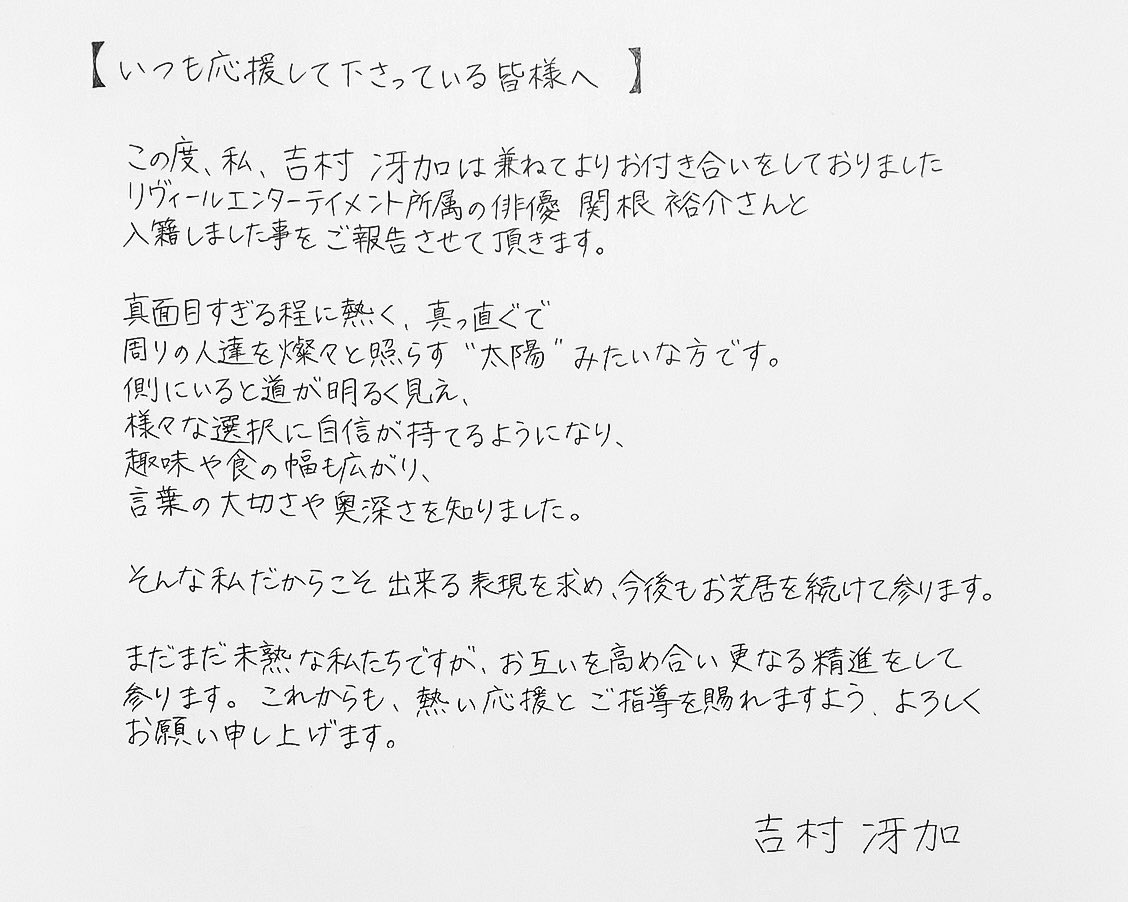 【いつも応援して下さっている皆様へ】
この度、私、吉村 冴加は兼ねてよりお付き合いをしておりました
リヴィールエンターテイメント所属の俳優 関根 裕介さんと
入籍しました事をご報告させて頂きます。
真面目すぎる程に熱く、真っ直ぐで
周りの人達を燦々と照らす“太陽”みたいな方です。
側にいると道が明るく見え、
様々な選択に自信が持てるようになり、
趣味や食の幅も広がり、
言葉の大切さや奥深さを知りました。
そんな私だからこそ出来る表現を求め、今後もお芝居を続けて参ります。
まだまだ未熟な私たちですが、お互いを高め合い更なる精進をして
参ります。これからも、熱い応援とご指導を賜れますよう、よろしく
お願い申し上げます。
吉村 冴加